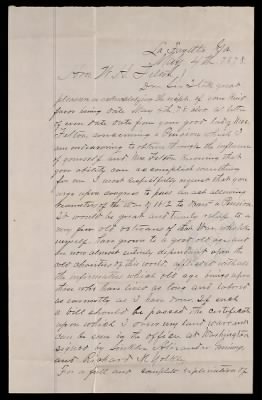 La Fayette Ga.
May 4th 1878.
Hon. W. H. Felton,
Dear Sir I take great
pleasure in acknowledging the receipt of your kind
favor bearing date May 2th 78 also a letter
of even date from your good lady Mrs.
Felton, concerning a Pension which I
am endeavoring to obtain through the influence
of yourself and Mrs Felton knowing that
your ability can accomplish something
for me I most respectfully request that you
urge upon congress to pass an act allowing
of the War of 1812 to draw a Pension
It would be great and timely relief to a
very few old veterans of that War, while to
myself, I am grown to a good old age and
am now almost entirely dependent upon the
cold charities of the world afflicted with
the infirmities which old age brings upon
those who have lived as long and labored
as earnestly as I have done. If such
a bill should be passed the certificate
upon which I drew my land warrant
can be seen by the officer at Washington
signed by
and Richard M.
For a full and complete explanation of